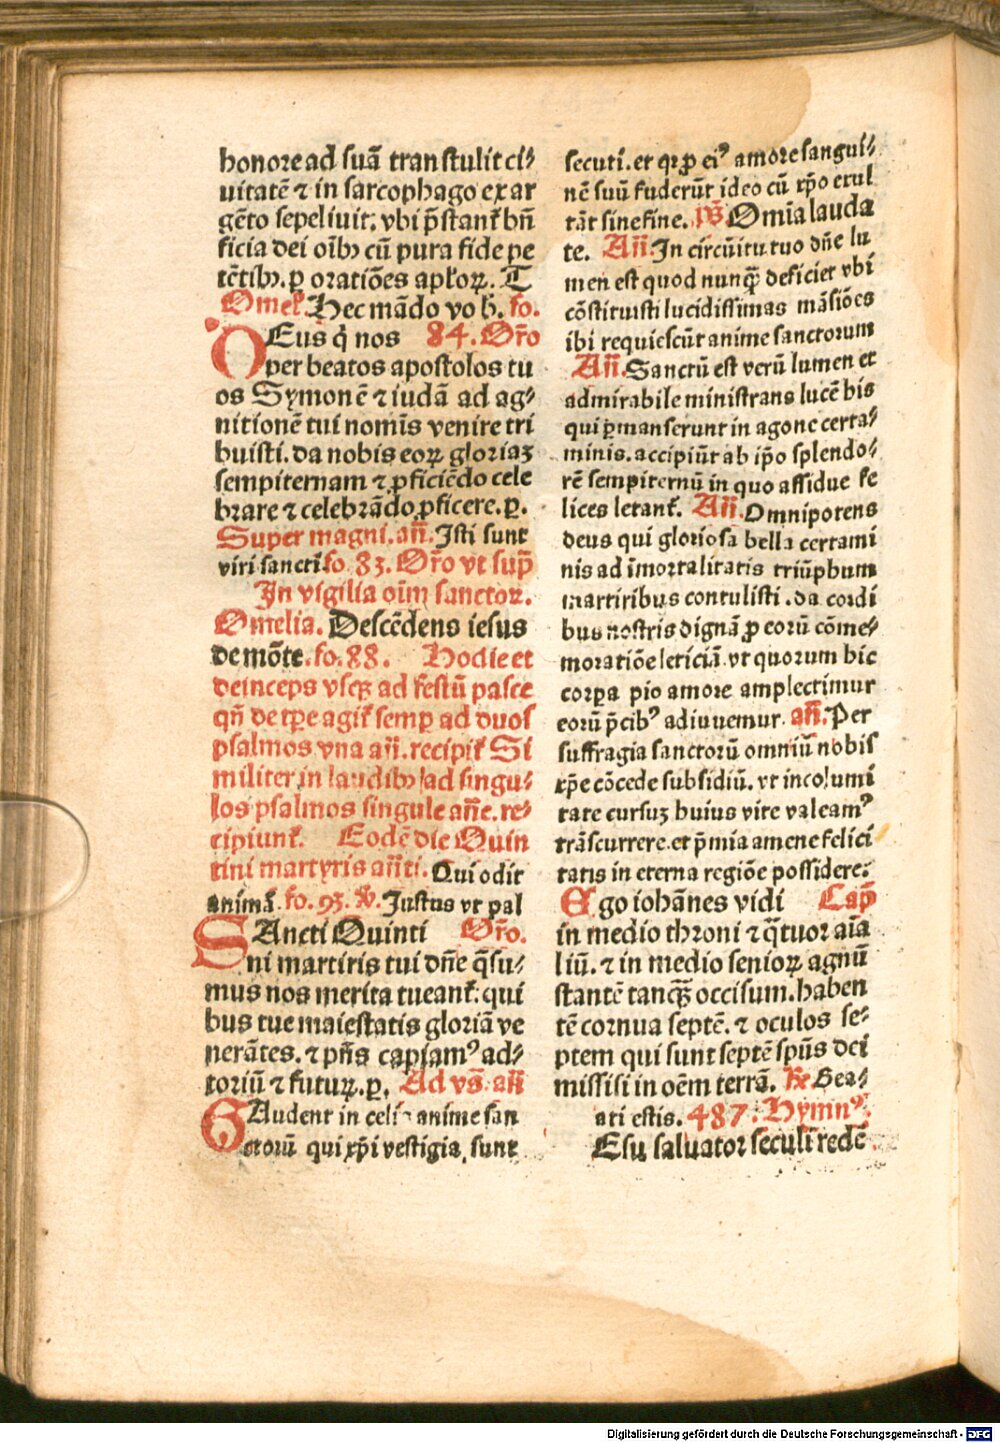 honore ad suā transtulit ci⸗
uitatē ⁊ in sarcophago ex ar
gēto sepeliuit. vbi p̄stant᷑ bn̄
ficia dei oībꝫ cū pura fide pe
tētibꝫ. ꝑ oratiōes apłoꝝ. T
Omeł Hec mādo vob̄. fo.
DEus q̇ nos 84. Or̄o
per beatos apostolos tu
os Symonē ⁊ iudā ad ag⸗
nitionē tui nomīs venire tri
buisti. da nobis eoꝝ gloriaꝫ
sempiternam ⁊ ꝓficiēdo cele
brare ⁊ celebrādo ꝓficere. ꝑ.
Super magni. an̄. Isti sunt
viri sancti. fo. 83. Or̄o vt sup̄
In vigilia oīm sanctoꝝ.
Omelia. Descēdens iesus
de mōte. fo. 88. Hodie et
deinceps vsqꝫ ad festū pasce
qn̄ de tꝑe agit᷑ semꝑ ad duos
psalmos vna an̄. recipit᷑ Si
militer in laudibꝫ ad singu⸗
los psalmos singule an̄e. re⸗
cipiunt᷑. Eodē die Quin
tini martyris an̄ti. Qui odit
animā. fo. 93. V̄. Justus vt pal
SAncti Quinti Or̄o.
ni martiris tui dn̄e q̄su⸗
mus nos merita tueant᷑: qui
bus tue maiestatis gloriā ve
nerātes. ⁊ pn̄s capiamꝰ ad⸗
toriū ⁊ futuꝝ. ꝑ. Ad vs̄. an̄
GAudent in celis anime san
ctorū qui xp̄i vestigia sunt
secuti. et qꝛ ꝓ eiꝰ amore sangui⸗
nē suū fuderūt ideo cū xp̄o exul
tāt sine fine. ps̄ Omīa lauda
te. An̄. In circūitu tuo dn̄e lu
men est quod nunqͣ̄ deficiet vbi
cōstituisti lucidissimas māsiōes
ibi requiescūt anime sanctorum
An̄. Sanctū est verū lumen et
admirabile ministrans lucē his
qui ꝑmanserunt in agone certa⸗
minis. accipiūt ab ip̄o splendo⸗
rē sempiternū in quo assidue fe
lices letant᷑. An̄. Omnipotens
deus qui gloriosa bella certami
nis ad īmortalitatis triūphum
martiribus contulisti. da cordi
bus nostris dignā ꝓ eorū cōme⸗
moratiōe leticiā. vt quorum hic
corpa pio amore amplectimur
eorū p̄cibꝰ adiuuemur. an̄. Per
suffragia sanctorū omniū nobis
xp̄e cōcede subsidiū. vt incolumi
tate cursuꝫ huius vite valeamꝰ
trāscurrere. et p̄mia amene felici
tatis in eterna regiōe possidere.
Ego iohānes vidi Cap̄
in medio throni ⁊ q̄tuor aīa
liū. ⁊ in medio senioꝝ agnū
stantē tanqͣ̄ occisum. haben
tē cornua septē. ⁊ oculos se⸗
ptem qui sunt septē spūs dei
missi in oēm terrā. R̄. Bea⸗
ati estis. 487. Hymnꝰ.
Esu saluator seculi redē
Digitalisierung gefördert durch die Deutsche Forschungsgemeinschaft - DFG